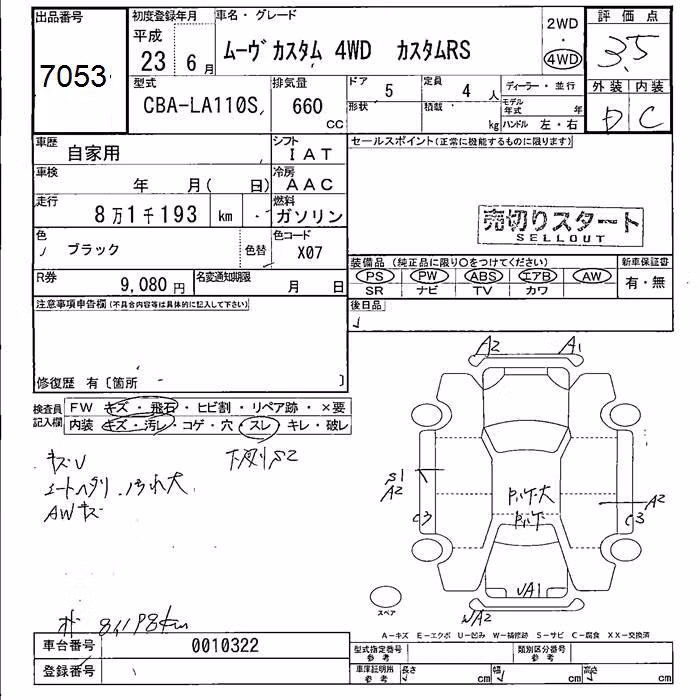 出品番号
7053
初度登録年月
平成
23 6月
車名・グレード
ムーヴカスタム 4WD カスタムRS
2WD
・
4WD
評価点
3.5
型式
CBA-LA110S
排気量
660
CC
ドア
5
定員
4 人
ディーラー・並行
形状
積載
kg
モデル年式 年
ハンドル 左・右
外装 内装
D C
車歴
自家用
シフト
IAT
車検
年 月( 日)
冷房
AAC
走行
8万1千193 km
燃料
ガソリン
色
ブラック
色替
色コード
X07
R券
9,080円
名変通知期限
月 日
セールスポイント(正常に機能するものに限ります)
売切りスタート
SELLOUT
装備品(純正品に限り○をつけてください)
新車保証書
PS PW ABS エアB AW
SR ナビ TV カワ
有・無
後日品
注意事項申告欄(不具合内容等は具体的に記入して下さい)
修復歴 有〔箇所 〕
検査員記入欄
FW キズ・飛石・ヒビ割・リペア跡・×要
内装 キズ・汚レ・コゲ・穴・スレ・キレ・破レ
キズU
下廻りS2
AWキズ
A2 A1
S1
A2
C3
A2
C3
A1
WA2
スペア
81198km
A-キズ E-エクボ U-凹み W-補修跡 S-サビ C-腐食 XX-交換済
車台番号
0010322
登録番号
型式指定番号
参考
類別区分番号
参考
車庫証明用
参考
長さ cm
幅 cm
高さ cm